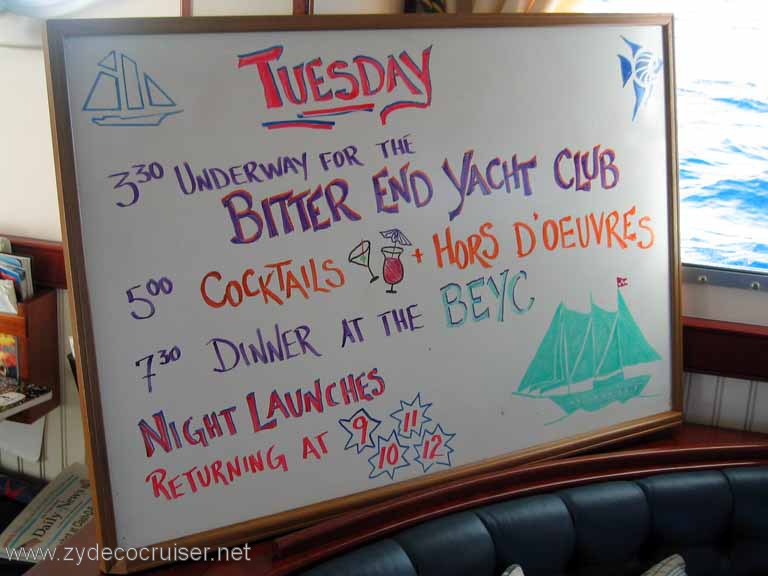 TUESDAY
3:30 UNDERWAY FOR THE
BITTER END YACHT CLUB
5:00 COCKTAILS + HORS D'OEUVRES
7:30 DINNER AT THE BEYC
NIGHT LAUNCHES
RETURNING AT 9 11
10 12
Daily News
www.zydecocruiser.net